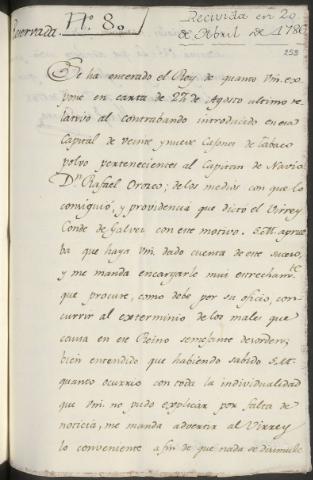 Reservada. N.º 8.º
Recivida en 20
de Abril de 1786
253
Se ha enterado el Rey de quanto Vm. ex-
pone en carta de 27 de Agosto ultimo re-
lativo al contrabando introducido en esa
Capital de veinte y nueve Caxones de tabaco
polvo pertenecientes al Capitan de Navio
Dn. Rafael Orozco; de los medios con que lo
consiguió, y providencia que dictó el Virrey
Conde de Galvez con este motivo. S.M. aprue
ba que haya Vm. dado cuenta de este suceso,
y me manda encargarle mui estrecham.te
que procure, como debe por su oficio, con-
currir al exterminio de los males que
causa en ese Reino semejante desorden;
bien entendido que habiendo sabido S.M.
quanto ocurrio con toda la individualidad
que Vm. no pudo explicar por falta de
noticia, me manda advertir al Virrey
lo conveniente a fin de que nada se disimule